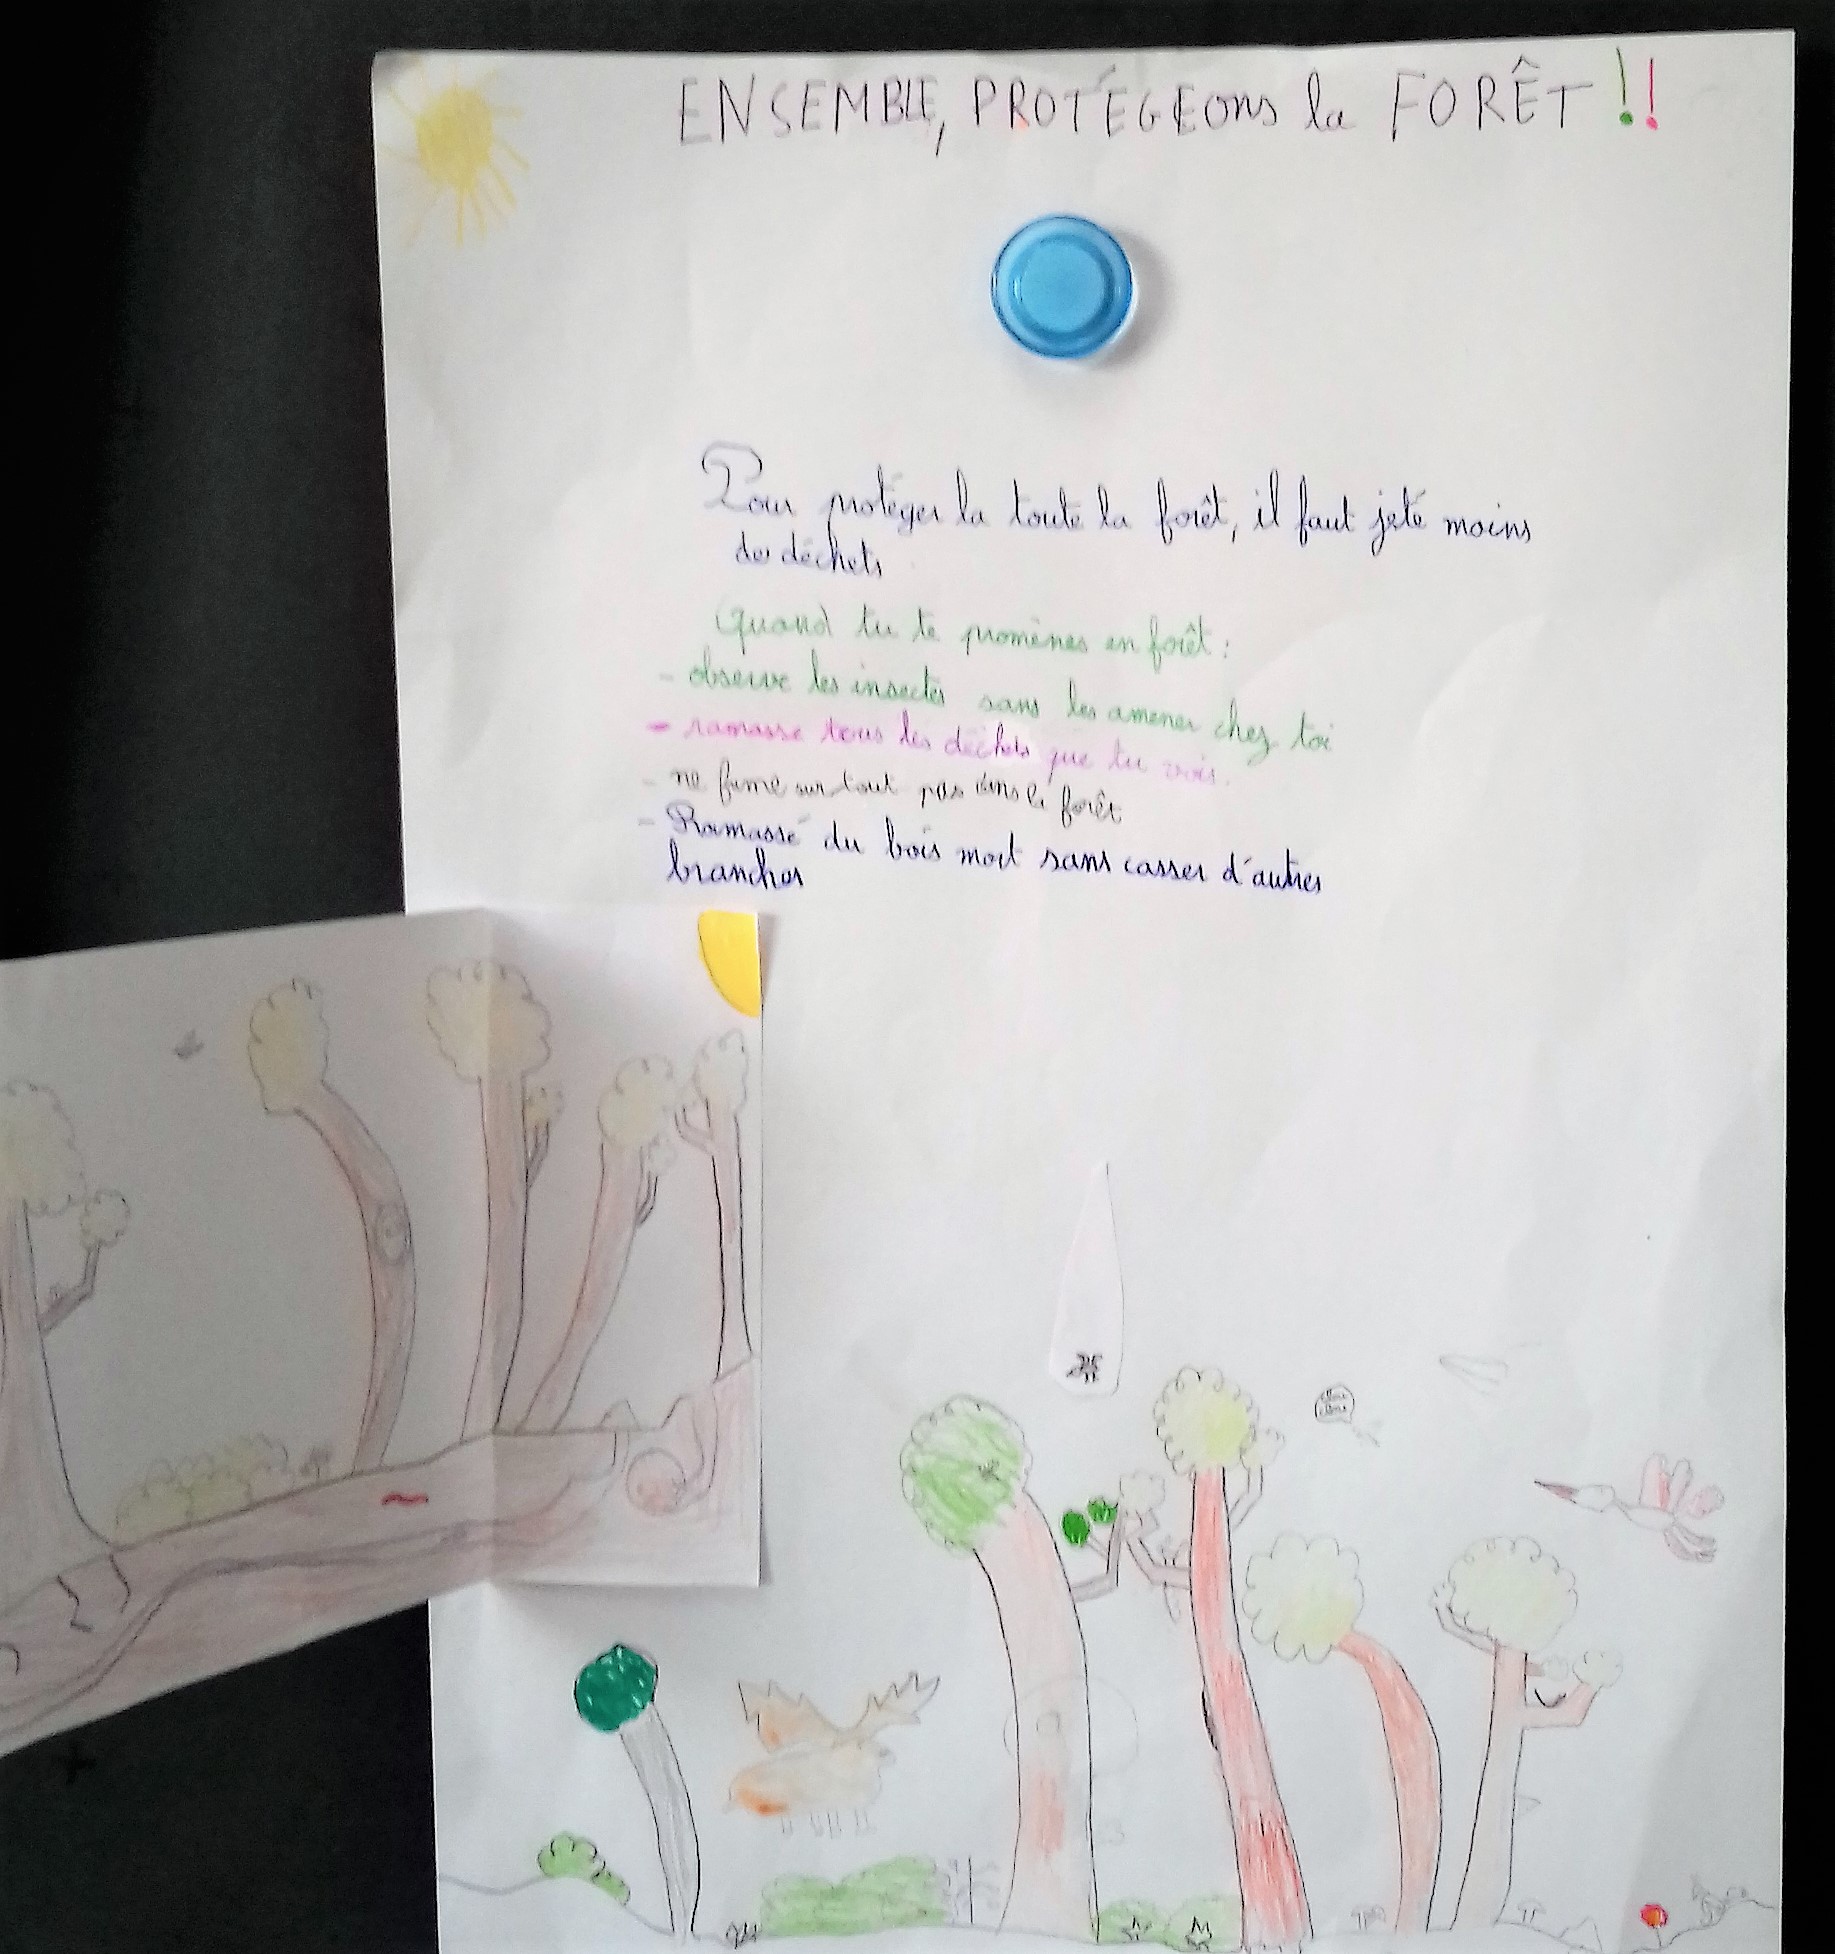 ENSEMBLE, PROTÉGEons la FORÊT !!
Pour protéger la toute la forêt, il faut jeté moins
des déchets
Quand tu te promènes en forêt :
- observe les insectes sans les amener chez toi
- ramasse tous les déchets que tu vois.
- ne fume surtout pas dans la forêt
- Ramassé du bois mort sans casser d'autres
branches